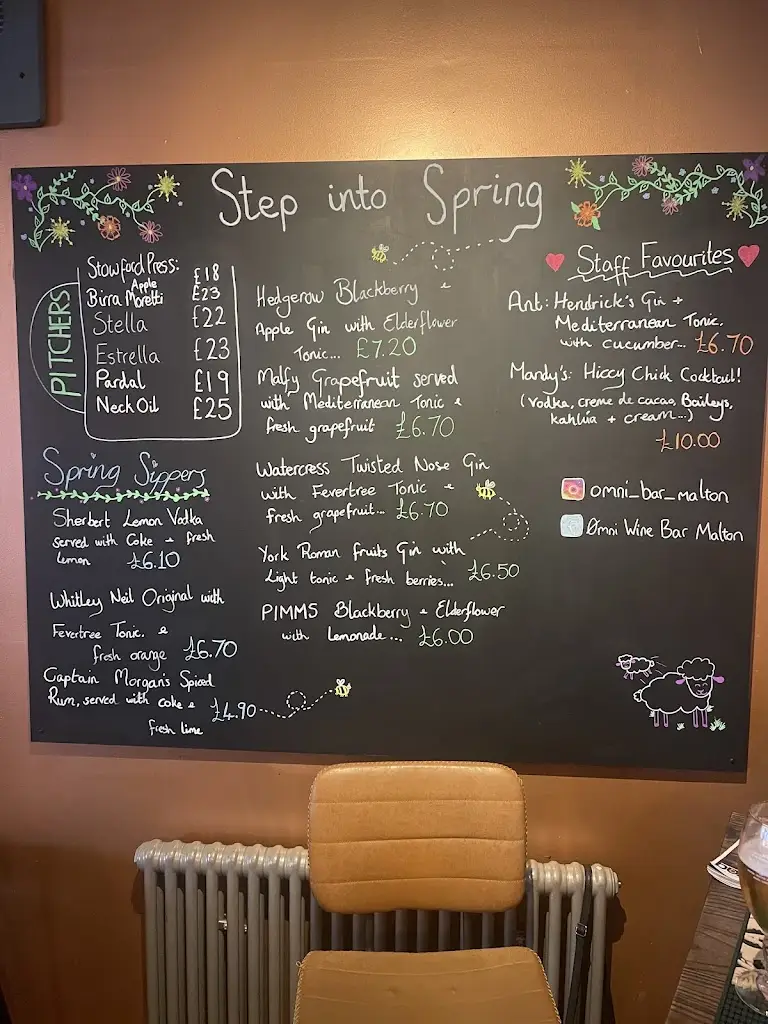 Step into Spring
PITCHERS
Stowford Press: £18
Apple
Birra Moretti £23
Stella £22
Estrella £23
Pardal £19
Neck Oil £25
Spring Sippers
Sherbert Lemon Vodka
served with Coke + fresh
lemon £6.10
Whitley Neil Original with
Fevertree Tonic. &
fresh orange £6.70
Captain Morgan's Spiced
Rum, served with coke &
£4.90
fresh lime
Hedgerow Blackberry &
Apple Gin with Elderflower
Tonic... £7.20
Malfy Grapefruit served
with Mediterranean Tonic &
fresh grapefruit £6.70
Watercress Twisted Nose Gin
with Fevertree Tonic &
fresh grapefruit... £6.70
York Roman fruits Gin with
Light tonic & fresh berries... £6.50
PIMMS Blackberry & Elderflower
with lemonade... £6.00
Staff Favourites
Ant: Hendrick's Gin +
Mediterranean Tonic.
with cucumber... £6.70
Mandy's: Hiccy Chick Cocktail!
(Vodka, creme de cacao, Baileys,
kahlúa + cream...)
£10.00
omni_bar_malton
Ømni Wine Bar Malton